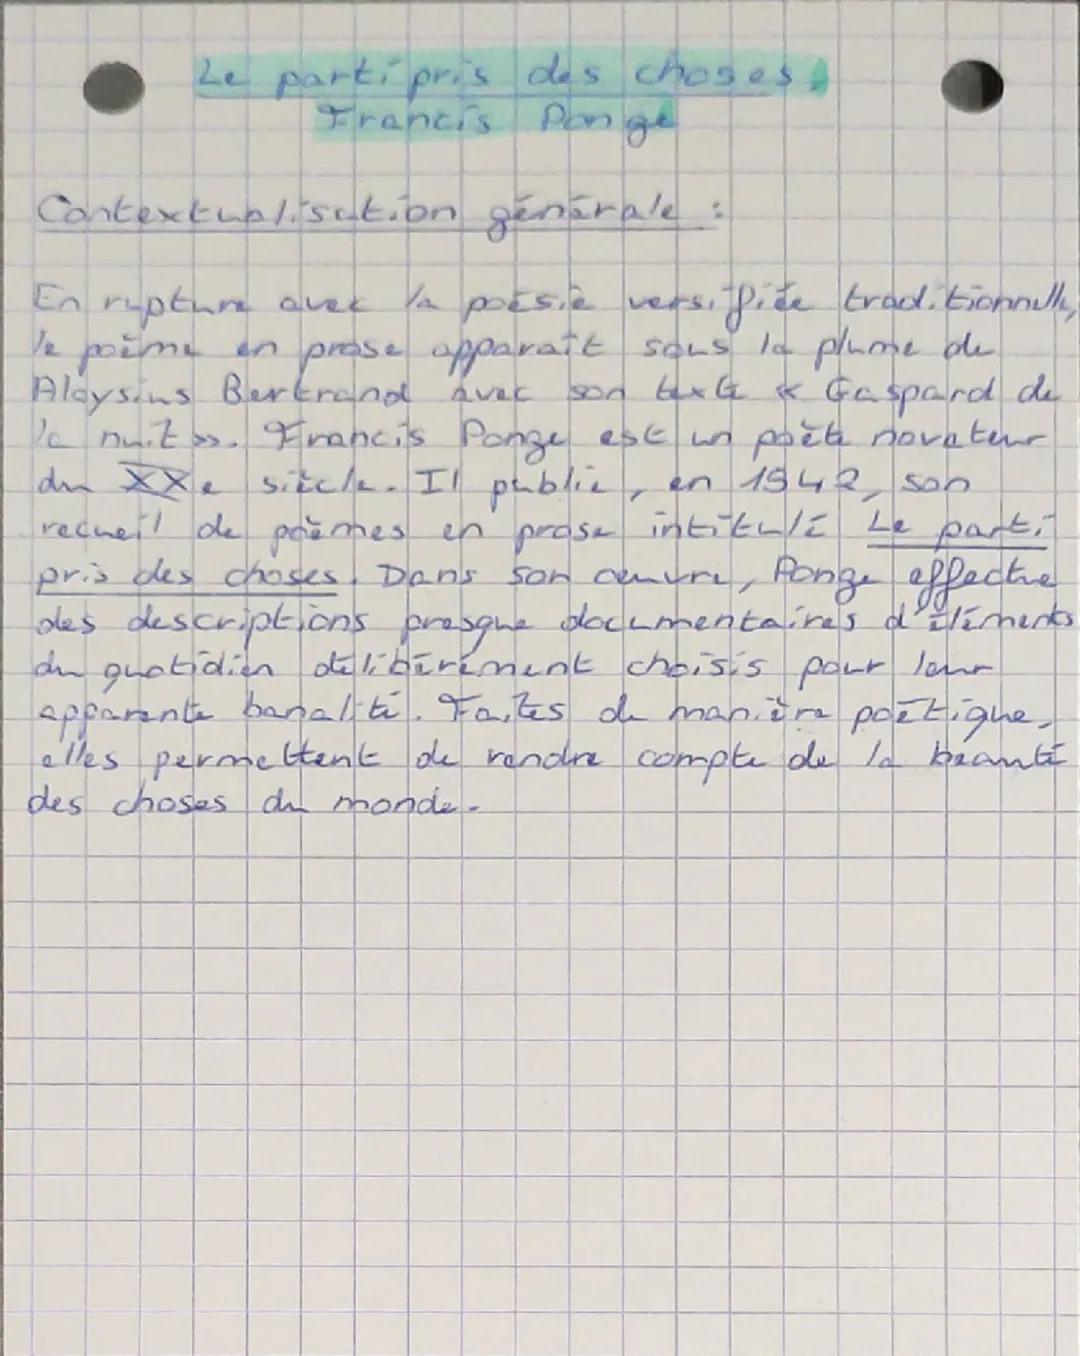 Le parti pris des choses,
Francis Ponge
Contextualisation générale :
En rupture avec la poésie versifiée traditionnelle,
le poème en prose apparaît sous la plume de
Aloysius Bertrand avec son texte « Gaspard de
la nuit ». Francis Ponge est un poète novateur
du XXe siècle. Il publie, en 1942, son
recueil de poèmes en prose intitulé Le parti
pris des choses. Dans son œuvre, Ponge effectue
des descriptions presque documentaires d'éléments
du quotidien délibérément choisis pour leur
apparente banalité. Faites de manière poétique,
elles permettent de rendre compte de la beauté
des choses du monde.